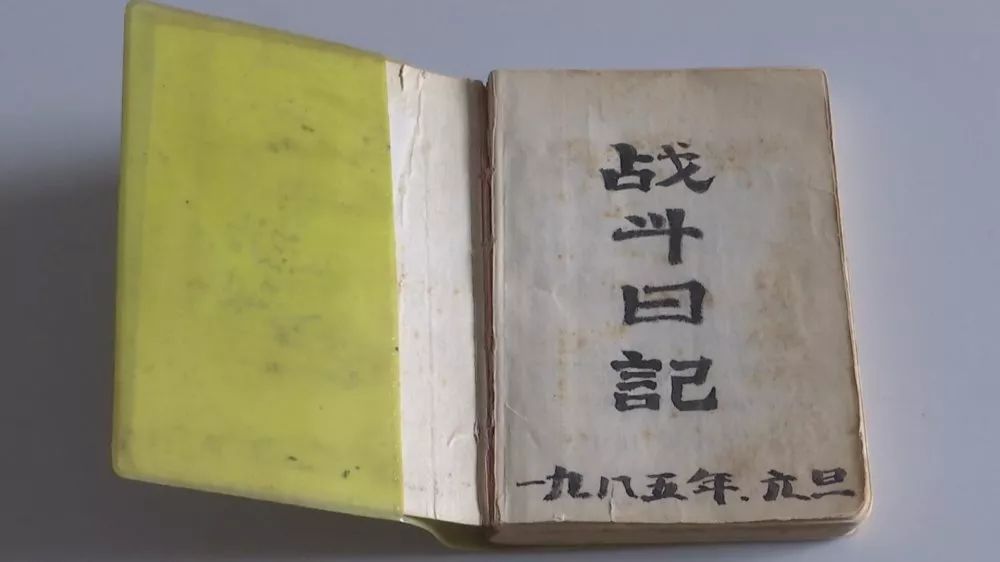 战斗日記
一九八五年.元旦